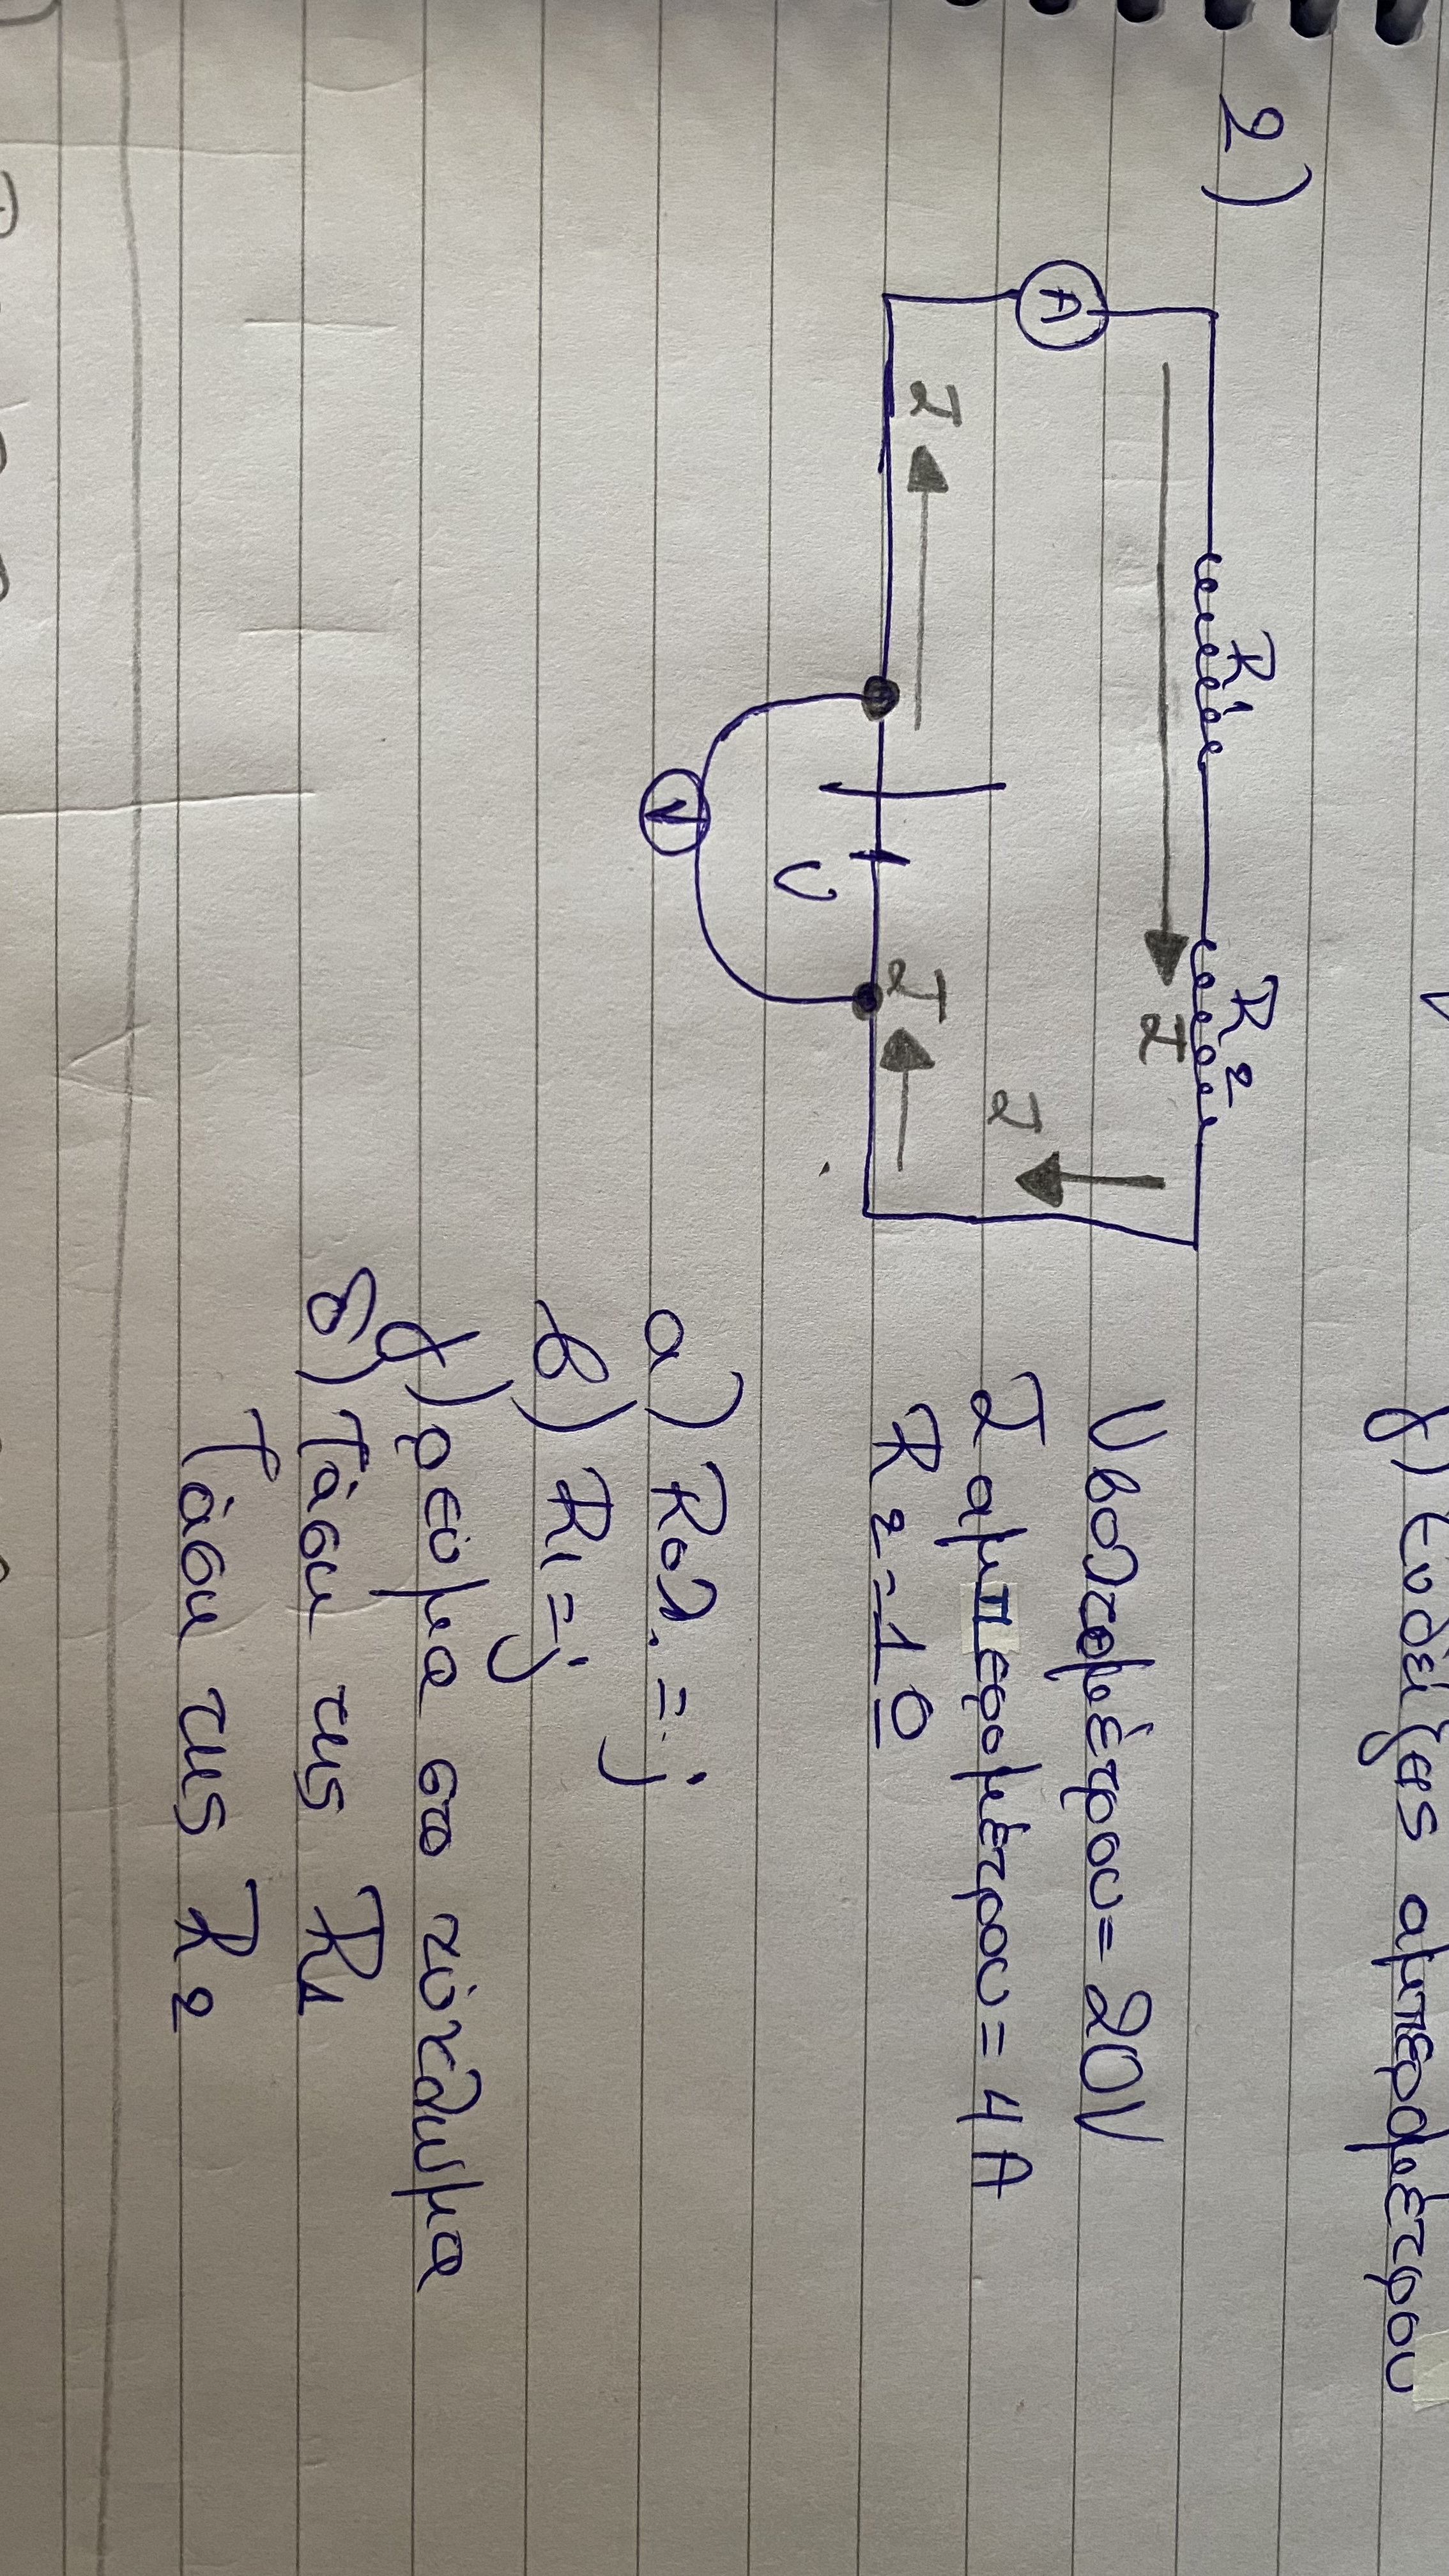 γ) Ενδείξεις αμπερομέτρου
2)
R1
R2
A
I
I
I
I
V
V
V βολτομέτρου = 20V
I αμπερομέτρου = 4A
R2 = 1Ω
α) Rολ. = ;
β) R1 = ;
γ) ρεύμα στο κύκλωμα
δ) Τάση της R1
Τάση της R2